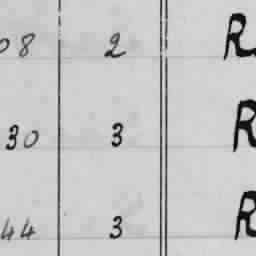 08 2 R
30 3 R
44 3 R